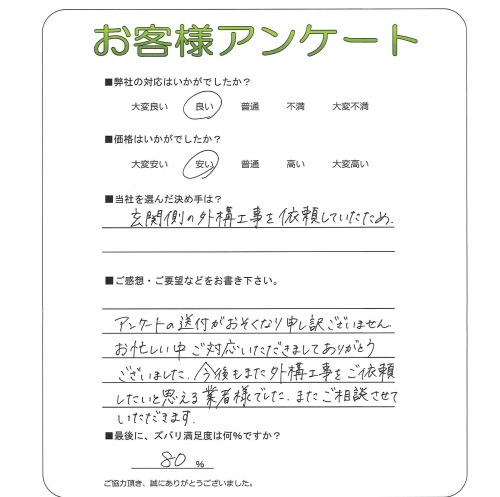 お客様アンケート
■弊社の対応はいかがでしたか？
大変良い 良い 普通 不満 大変不満
■価格はいかがでしたか？
大変安い 安い 普通 高い 大変高い
■当社を選んだ決め手は？
玄関側の外構工事を依頼していたため.
■ご感想・ご要望などをお書き下さい。
アンケートの送付がおそくなり申し訳ございません.
お忙しい中ご対応いただきましてありがとう
ございました. 今後もまた外構工事をご依頼
したいと思える業者様でした. またご相談させて
いただきます.
■最後に、ズバリ満足度は何％ですか？
80 %
ご協力頂き、誠にありがとうございました。